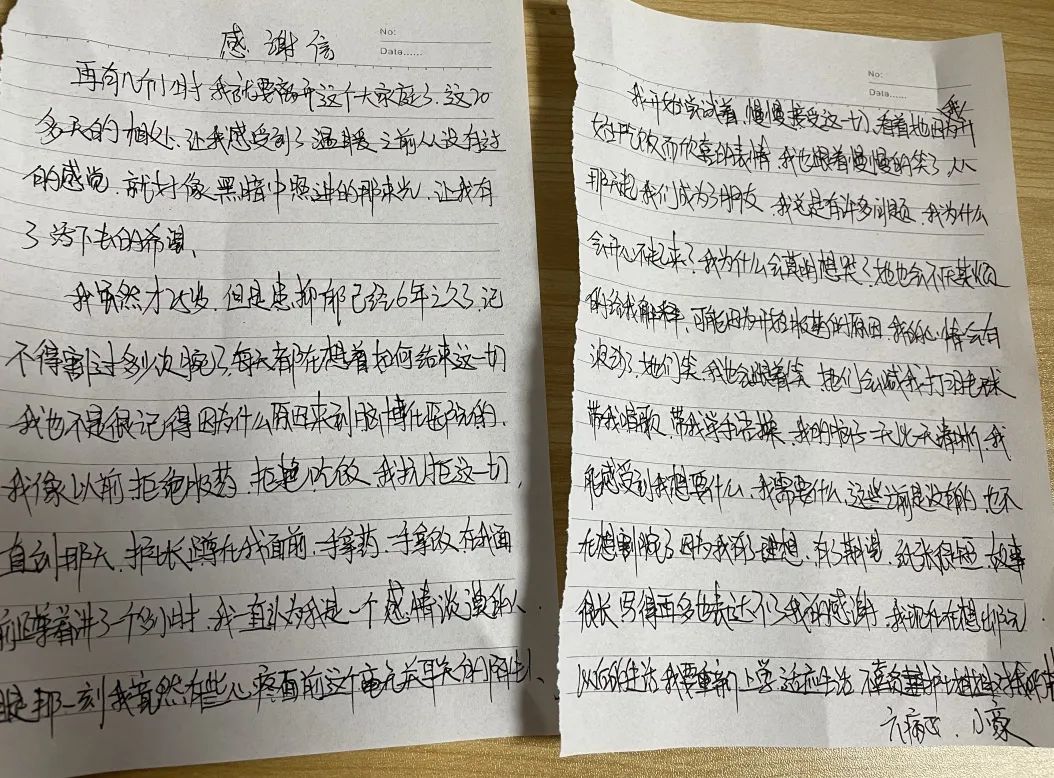 感谢信
No:
Date......
再有几个小时我就要离开这个大家庭了.这20
多天的相处.让我感受到了温暖之前从没有过
的感觉.就好像黑暗中照进的那束光.让我有
了活下去的希望、
我虽然才岁.但是患抑郁已经6年之久了.记
不得割过多少次腕了每天都在想着如何结束这一切
我也不是很记得因为什么原因来到脑博仕医院的.
我像以前拒绝服药.拒绝吃饭.我抗拒这一切.
直到那天.护士长蹲在我面前.一手拿药一手拿饭在我面
前蹲着讲了一个多小时.我一直认为我是一个感情淡漠的人.
但是那一刻我竟然有些心疼面前这个毫无关联的陌生人、
No:
Data......
我开始尝试着.慢慢接受这一切.看着她因为我开
始吃饭而欣喜的表情.我也跟着慢慢的笑了.从
那天起我们成为了朋友.我总是有许多问题.我为什么
会开心不起来了.我为什么会真的想哭了她也会不厌其烦
的给我解释.可能因为开始服药的原因.我的心情会有
波动了.她们笑.我也会跟着笑.她们会喊我打羽毛球
带我唱歌.带我学手语操.我的脑子一天比一天清晰.我
能感受到我想要什么.我需要什么.这些之前是没有的.也不
在想割腕了因为我有了理想.有了期望.纸张很短.故事
很长.写得再多也表达不了我的感谢.我现在在想出院
以后的生活我要重新上学适应生活不辜负
六病区.小豪